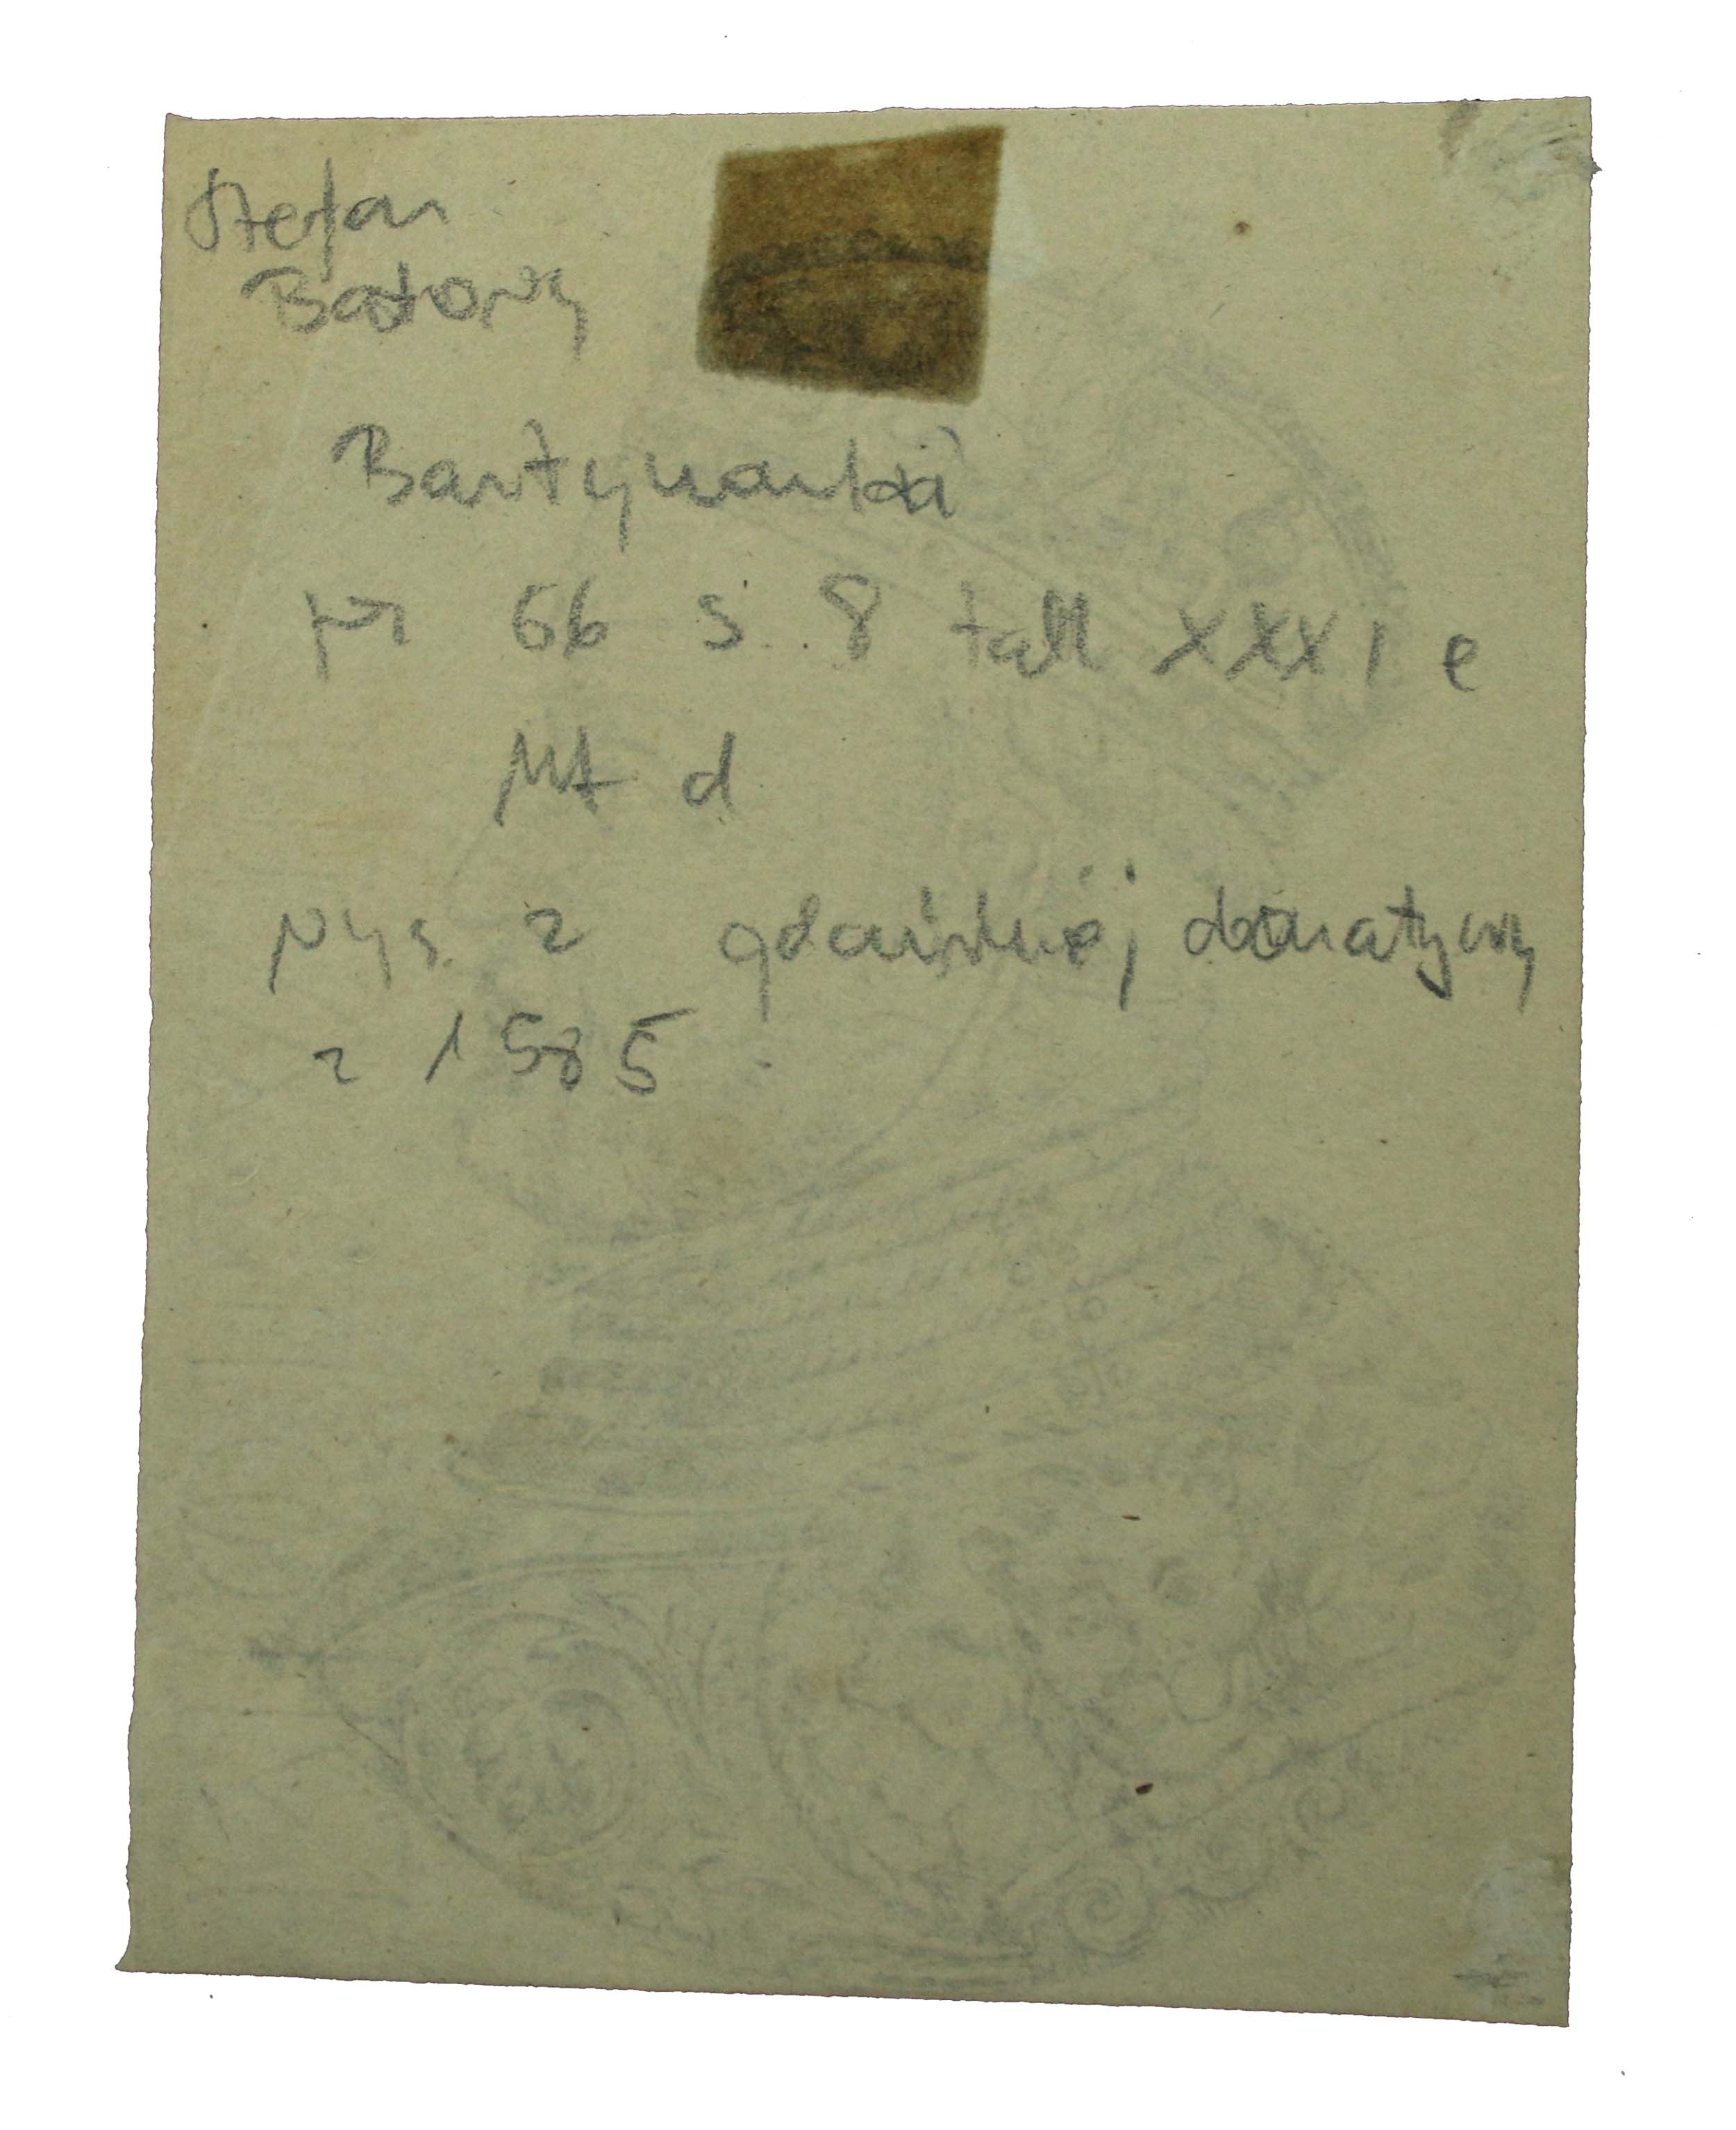 Stefan
Batory
Bartynowski
nr 66 s. 8 tabl XXXI e
Mt d
rys. z gdańskiej donatywy
z 1585